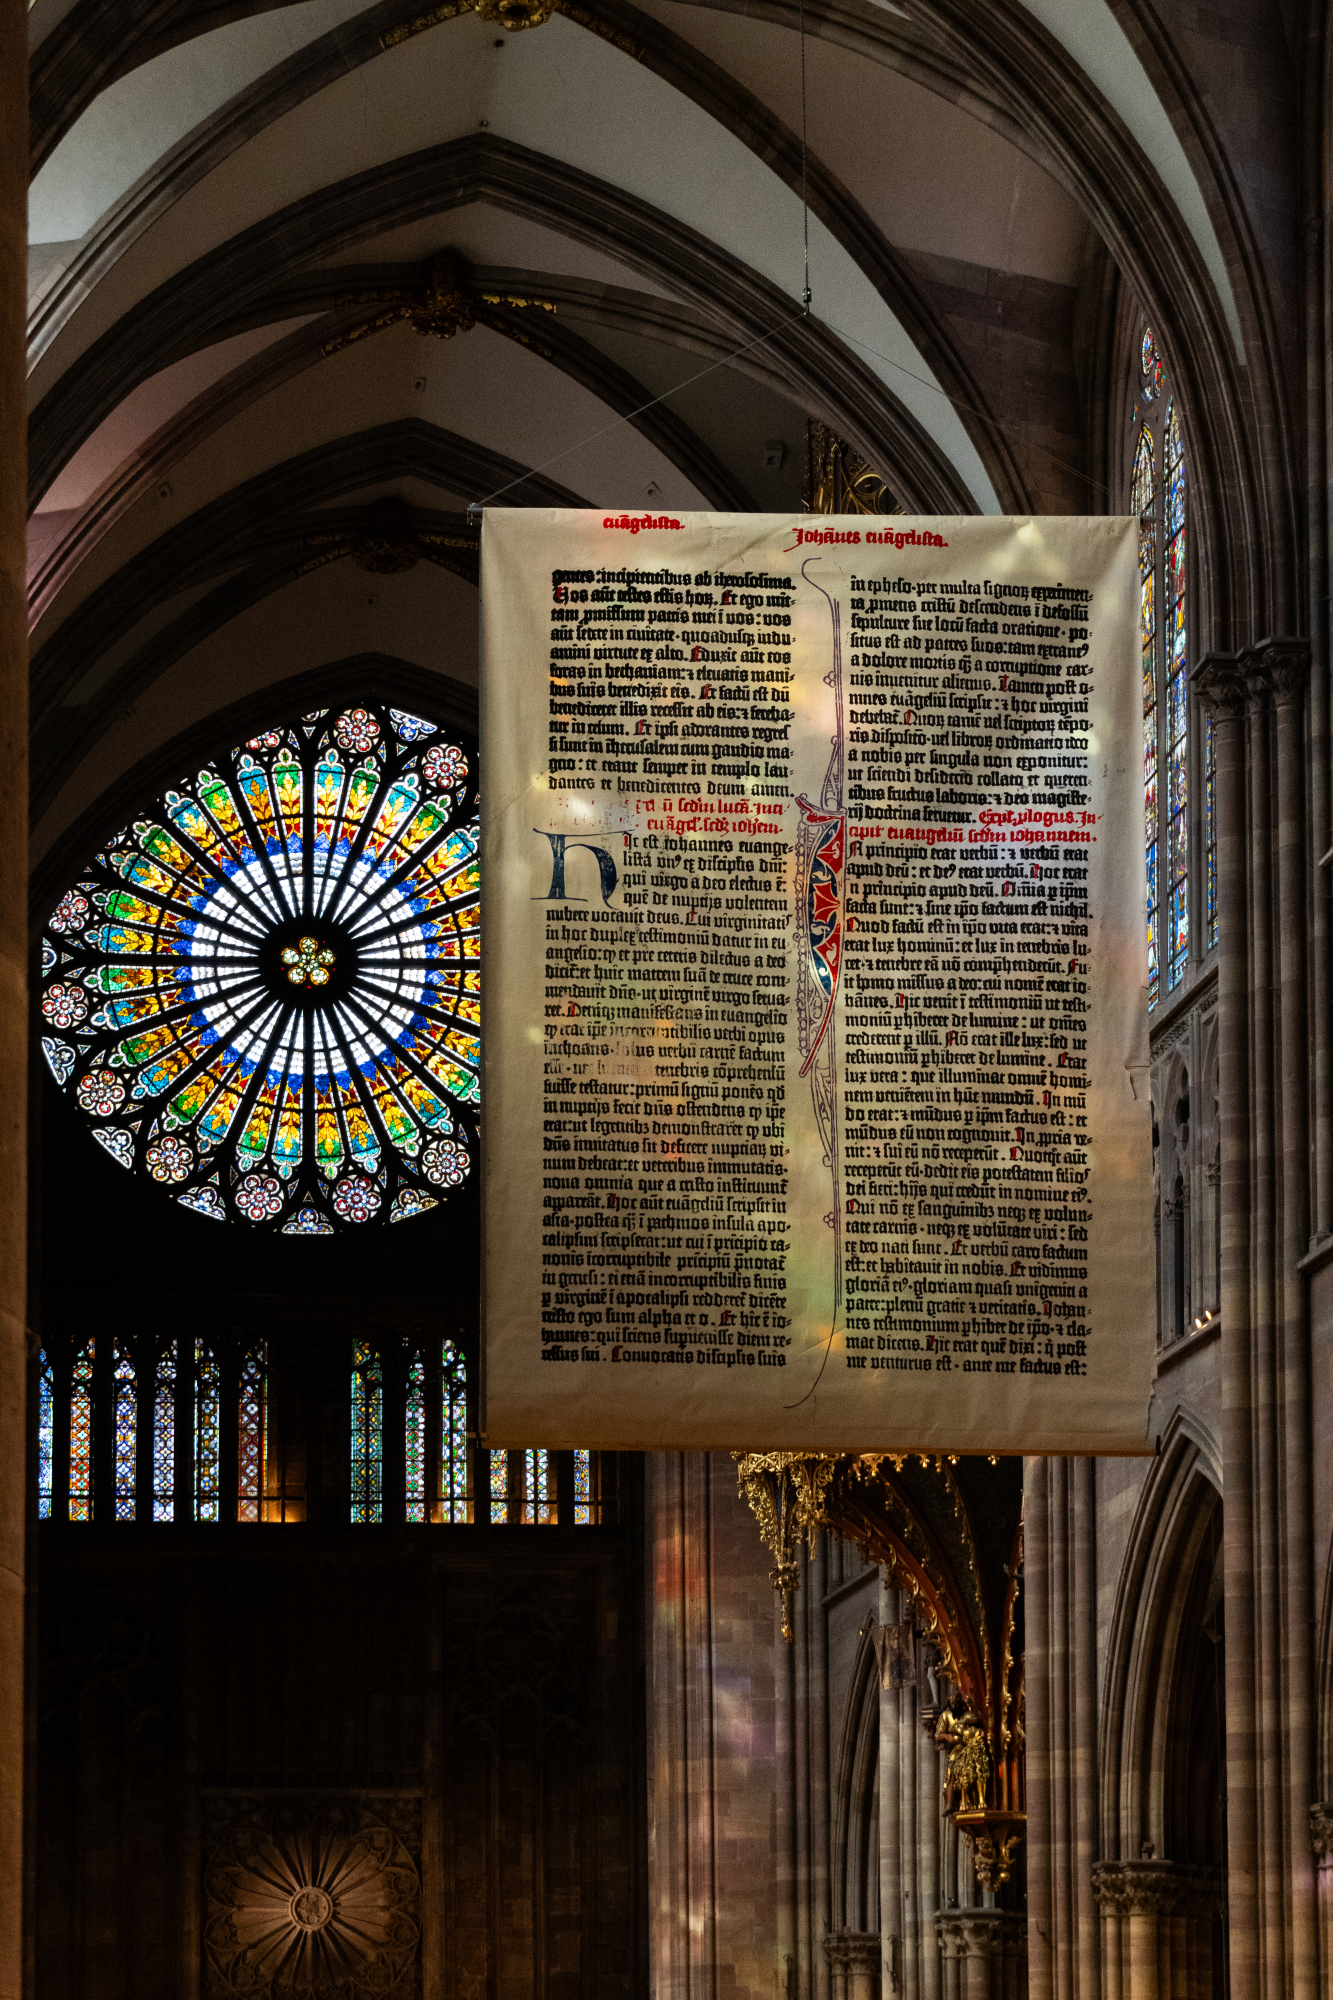 euāgelista.
Johānes euāgelista.
gentes: incipientibus ab iherosolima.
Vos aūt testes estis hoꝝ. Et ego mit-
tam ꝓmissum patris mei ī vos: vos
aūt sedete in ciuitate · quoadusqꝫ indu-
amini virtute ex alto. Eduxit aūt eos
foras in bethaniam: ⁊ eleuatis mani-
bus suis benedixit eis. Et factū est dū
benediceret illis recessit ab eis: ⁊ fereba-
tur in celum. Et ipsi adorantes regres-
si sunt in iherusalem cum gaudio ma-
gno: et erant semper in templo lau-
dantes et benedicentes deum amen.
scdm lucā.
Hic est Johannes euange-
lista vnꝰ ex discipłis dn̄i:
qui virgo a deo electus ē:
quē de nuptijs volentem
nubere vocauit deus. Cui virginitatis
in hoc duplex testimoniū datur in eu-
angelio: ꝙ et pre ceteris dilectus a deo
dicit᷑: et huic matrem suā de cruce com-
mendauit dn̄s · ut virginē virgo serua-
ret. Deniqꝫ manifestans in euangelio
ꝙ erat ip̄e incorruptibilis verbi opus
inchoans · solus verbū carnē factum
esse · nec lumen a tenebris cōprehensū
fuisse testatur: primū signū ponēs qd̄
in nuptijs fecit dn̄s ostendens ꝙ ip̄e
erat: ut legentibꝫ demonstraret ꝙ ubi
dn̄s inuitatus sit deficere nuptiaꝝ vi-
num debeat: et veteribus immutatis ·
noua omnia que a cristo instituunt᷑
appareāt. Hoc aūt euāgeliū scripsit in
asia · postea qȝ ī pathmos insula apo-
calipsim scripserat: ut cui ī pricipio ca-
nonis īcorruptibile pricipiū p̄notat᷑
in genesi: ei etiā incorruptibilis finis
ꝑ virginē ī apocalipsi redderet᷑ dicēte
cristo ego sum alpha et o. Et hic ē io-
hannes: qui sciens supuenisse diem re-
cessus sui. Conuocatis discipłis suis
in epheso · per multa signoꝝ experimen-
ta ꝓmens cristū descendens ī defossū
sepulture sue locū facta oratione · po-
situs est ad patres suos: tam extraneꝰ
a dolore mortis qȝ a corruptione car-
nis inuenitur alienus. Tamen post o-
mnes euāgeliū scripsit: ⁊ hoc virgini
debebat᷑. Quoꝝ tamē vel scriptoꝝ tēpo-
ris dispositio · vel libroꝝ ordinatio ideo
a nobis per singula non exponitur:
ut sciendi desiderio collato et queren-
tibus fructus laboris: ⁊ deo magiste-
rij doctrina seruetur. Explꝫ ꝓlogus. In-
cipit euangeliū scdm iohannem.
In principio erat verbū: ⁊ verbū erat
apud deū: et deꝰ erat verbū. Hoc erat
in principio apud deū. Omīa ꝑ ip̄m
facta sunt: ⁊ sine ip̄o factum est nichil.
Quod factū est in ip̄o vita erat: ⁊ vita
erat lux hominū: et lux in tenebris lu-
cet · ⁊ tenebre eā nō comp̄henderūt. Fu-
it homo missus a deo: cui nomē erat io-
hānes. Hic venit ī testimoniū ut testi-
moniū phiberet de lumine: ut om̄es
crederent ꝑ illū. Nō erat ille lux: sed ut
testimoniū phiberet de lumine. Erat
lux vera: que illuminat omnē homi-
nem veniētem in hūc mundū. In mū-
do erat: ⁊ mūdus ꝑ ip̄m factus est: et
mūdus eū non cognouit. In ꝓpria ve-
nit: ⁊ sui eū nō receperūt. Quotqt̄ aūt
receperūt eū · dedit eis potestatem filios
dei fieri: hijs qui credūt in nomine eiꝰ.
Qui nō ex sanguinibꝫ neqꝫ ex volun-
tate carnis · neqꝫ ex volūtate viri: sed
ex deo nati sunt. Et verbū caro factum
est: et habitauit in nobis. Et vidimus
gloriā eiꝰ · gloriam quasi vnigeniti a
patre: plenū gratie ⁊ veritatis. Johan-
nes testimonium phibet de ip̄o · ⁊ cla-
mat dicens. Hic erat quē dixi: q̇ post
me venturus est · ante me factus est: